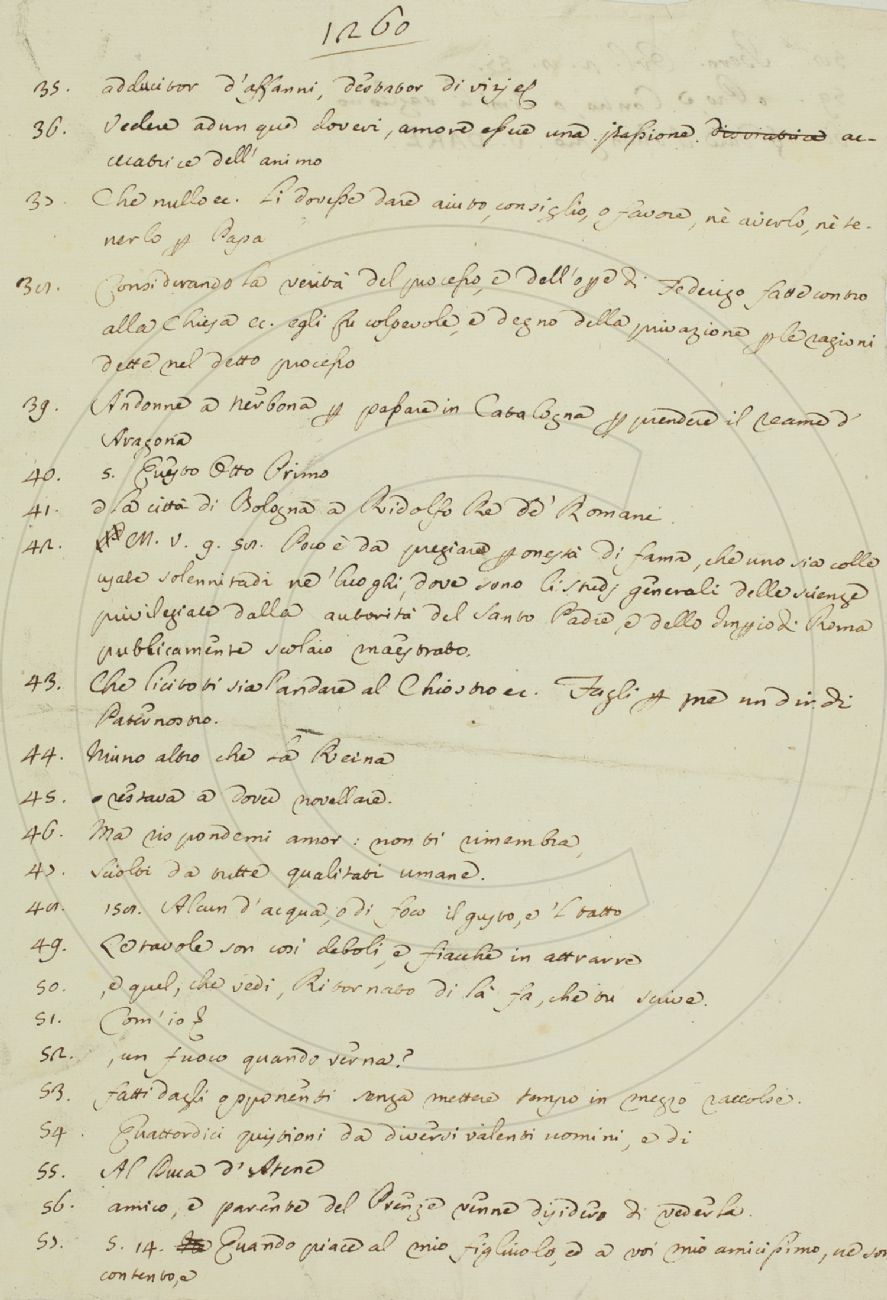 1260
35. adducitor d'affanni, destator di vizj ec
36. Vedere adunque dovevi, amore essere una passione ac-
cecatrice dell'animo
37. Che nullo ec. li dovesse dare aiuto, consiglio, o favore, nè averlo, nè te-
nerlo p Papa
38. Considerando la verità del processo, e dell'opre di Federigo fatte contro
alla Chiesa ec. egli fu colpevole, e degno della privazione p le ragioni
dette nel detto processo
39. Andonne a Nerbona p passare in Catalogna p prendere il reame d'
Aragona
40. s. Questo Otto Primo
41. la città di Bologna a Ridolfo Re de' Romani.
42. M. V. g. 58. Poco è da pregiare p onestà di fama, che uno sia colle
usate solennitadi ne' luoghi, dove sono li studj generali delle scienze
privilegiate dalla autorità del Santo Padre, e dello Impio di Roma
pubblicamente scolaio maestrato.
43. Che licito ti sia l'andare al Chiostro ec. Fagli p me un dir di
Paternostro.
44. Niuno altro che la Reina
45. restava a dover novellare.
46. Ma rispondemi amor: non ti rimembra,
47. Sciolti da tutte qualitati umane.
48. 158. Alcun d'acqua, o di foco il gusto, e 'l tatto
49. Le tavole son così deboli, e fiacche in attrarre
50. , e quel, che vedi, Ritornato di là fa, che tu scrive.
51. Com'io?
52. , un fuoco quando verna?
53. fatti dagli opponenti senza mettere tempo in mezzo raccolse.
54. Quattordici quistioni da diversi valenti uomini, e di
55. Al Duca d'Atene
56. amico, e parente del Prenze venne disidero di vederla.
57. s. 14. Quando piace al mio figliuolo, ed a voi mio amicissimo, ne son
contento, e